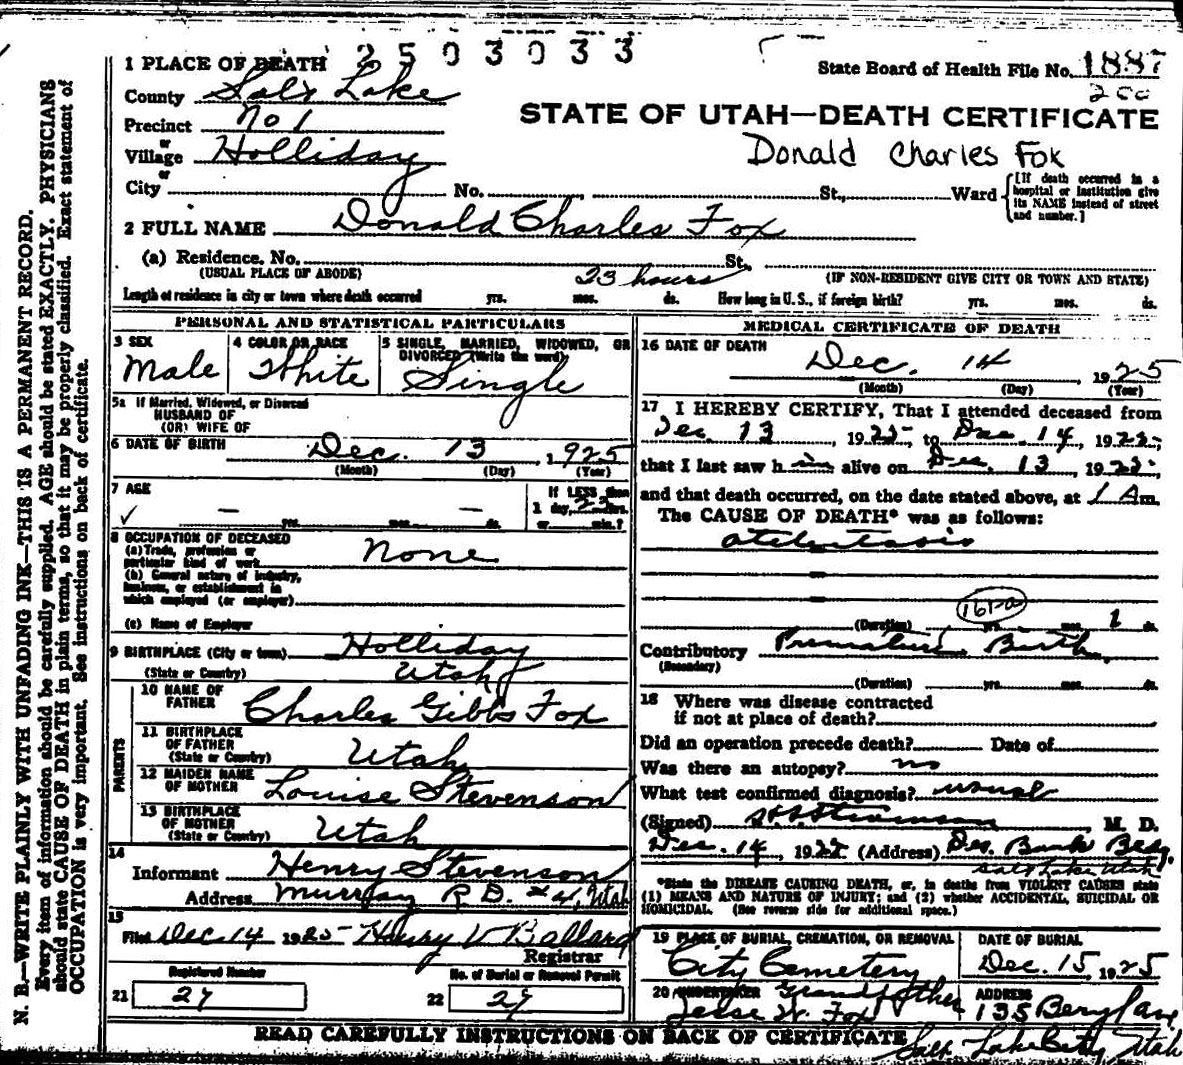 2503033
1 PLACE OF DEATH
State Board of Health File No. 1887
200
County Salt Lake
STATE OF UTAH—DEATH CERTIFICATE
Precinct No 1
or
Village Holliday
Donald Charles Fox
or
City No. St., Ward
[If death occurred in a hospital or institution give its NAME instead of street and number.]
2 FULL NAME Donald Charles Fox
(a) Residence. No. St.,
(USUAL PLACE OF ABODE) 23 hours (IF NON-RESIDENT GIVE CITY OR TOWN AND STATE)
Length of residence in city or town where death occurred yrs. mos. ds. How long in U. S., if foreign birth? yrs. mos. ds.
PERSONAL AND STATISTICAL PARTICULARS
3 SEX
Male
4 COLOR OR RACE
White
5 SINGLE, MARRIED, WIDOWED, OR DIVORCED (Write the word)
Single
5a If Married, Widowed, or Divorced
HUSBAND OF
(OR) WIFE OF
6 DATE OF BIRTH Dec. 13, 1925
(Month) (Day) (Year)
7 AGE
If LESS than
1 day, 23 hrs.
— yrs. mos. — ds. or min.?
8 OCCUPATION OF DECEASED
(a) Trade, profession or
particular kind of work None
(b) General nature of industry,
business, or establishment in
which employed (or employer)
(c) Name of Employer
9 BIRTHPLACE (City or town) Holliday
(State or Country) Utah
PARENTS
10 NAME OF
FATHER Charles Gibbs Fox
11 BIRTHPLACE
OF FATHER
(State or Country) Utah
12 MAIDEN NAME
OF MOTHER Louise Stevenson
13 BIRTHPLACE
OF MOTHER
(State or Country) Utah
14
Informant Henry Stevenson
Address Murray R.D. #4, Utah
15
Filed Dec 14 1925 Henry V Ballard
Registrar
Registered Number
21 27
No. of Burial or Removal Permit
22 29
MEDICAL CERTIFICATE OF DEATH
16 DATE OF DEATH
Dec. 14, 1925
(Month) (Day) (Year)
17 I HEREBY CERTIFY, That I attended deceased from
Dec. 13, 1925, to Dec. 14, 1925,
that I last saw him alive on Dec. 13, 1925,
and that death occurred, on the date stated above, at 1 Am.
The CAUSE OF DEATH* was as follows:
Atelectasis
(Duration) yrs. mos. 1 ds.
Contributory Premature Birth
(Secondary)
(Duration) yrs. mos. ds.
18 Where was disease contracted
if not at place of death?
Did an operation precede death? Date of
Was there an autopsy? no
What test confirmed diagnosis? usual
(Signed) Stevenson M. D.
Dec. 14, 1925 (Address) Des. Bank Bldg.
Salt Lake Utah
*State the DISEASE CAUSING DEATH, or, in deaths from VIOLENT CAUSES state
(1) MEANS AND NATURE OF INJURY; and (2) whether ACCIDENTAL, SUICIDAL OR
HOMICIDAL. (See reverse side for additional space.)
19 PLACE OF BURIAL, CREMATION, OR REMOVAL
City Cemetery
DATE OF BURIAL
Dec. 15, 1925
20 UNDERTAKER Grandfather
Jesse W. Fox
ADDRESS
135
Salt Lake City Utah
READ CAREFULLY INSTRUCTIONS ON BACK OF CERTIFICATE
N. B.—WRITE PLAINLY WITH UNFADING INK—THIS IS A PERMANENT RECORD.
Every item of information should be carefully supplied. AGE should be stated EXACTLY. PHYSICIANS
should state CAUSE OF DEATH in plain terms, so that it may be properly classified. Exact statement of
OCCUPATION is very important. See instructions on back of certificate.